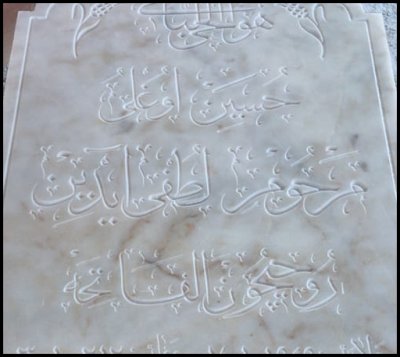 هو الحی الباقی
حُسَيْن اُوغْلُى
مَرْحُومْ لُطْفِى اٰيْدِينْ
رُوحِيچُونْ اَلْفَاتِحَه